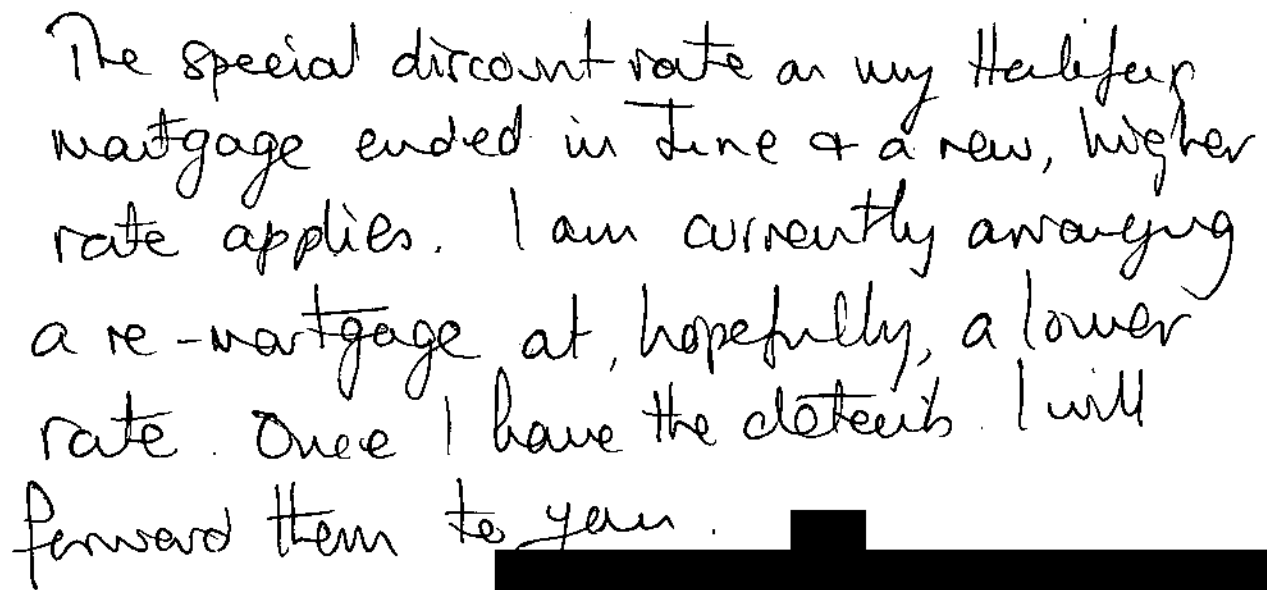 The special discount rate on my Halifax
mortgage ended in June & a new, higher
rate applies. I am currently arranging
a re-mortgage at, hopefully, a lower
rate. Once I have the details I will
forward them to you.